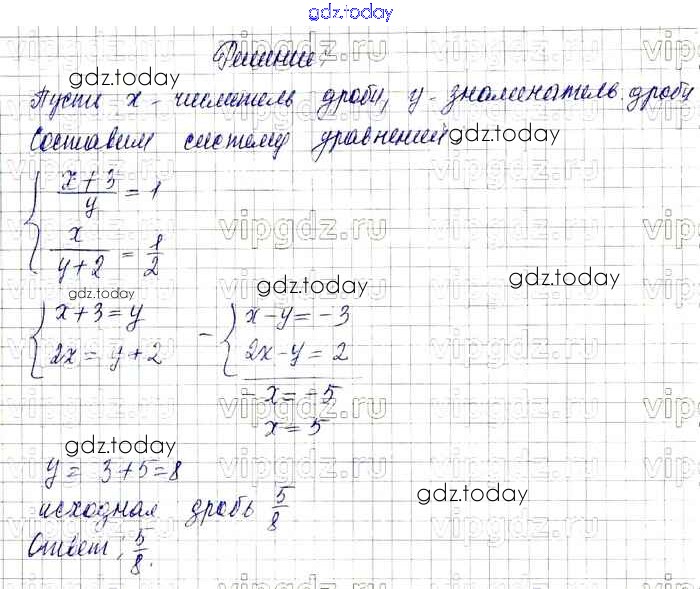 gdz.today
Решение
gdz.today
Пусть x - числитель дроби, y - знаменатель дроби
Составим систему уравнений
gdz.today
{ (x+3)/y = 1
{ x/(y+2) = 1/2
gdz.today
gdz.today
gdz.today
{ x+3=y
{ 2x = y+2
- { x-y=-3
{ 2x-y=2
-x=-5
x=5
gdz.today
y = 3+5=8
gdz.today
исходная дробь 5/8
Ответ: 5/8.
vipgdz.ru